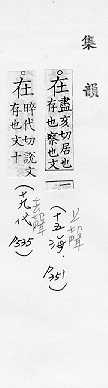 集韻
在
盡亥切居也
存也察也文
上聲
(十五海、
P351)
在
昨代切說文
存也文十
去聲
(十九代
P535)